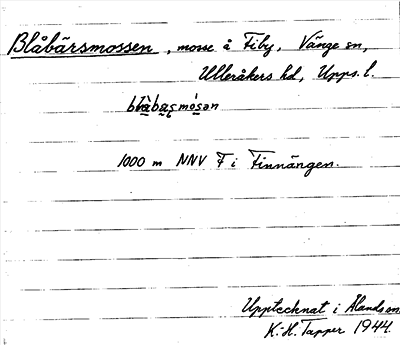 Blåbärsmossen, mosse å Fiby, Vänge sn,
Ulleråkers hd, Upps. l.
1000 m NNV F i Finnängen.
Upptecknat i Ålands sn
K.-H. Tapper 1944.